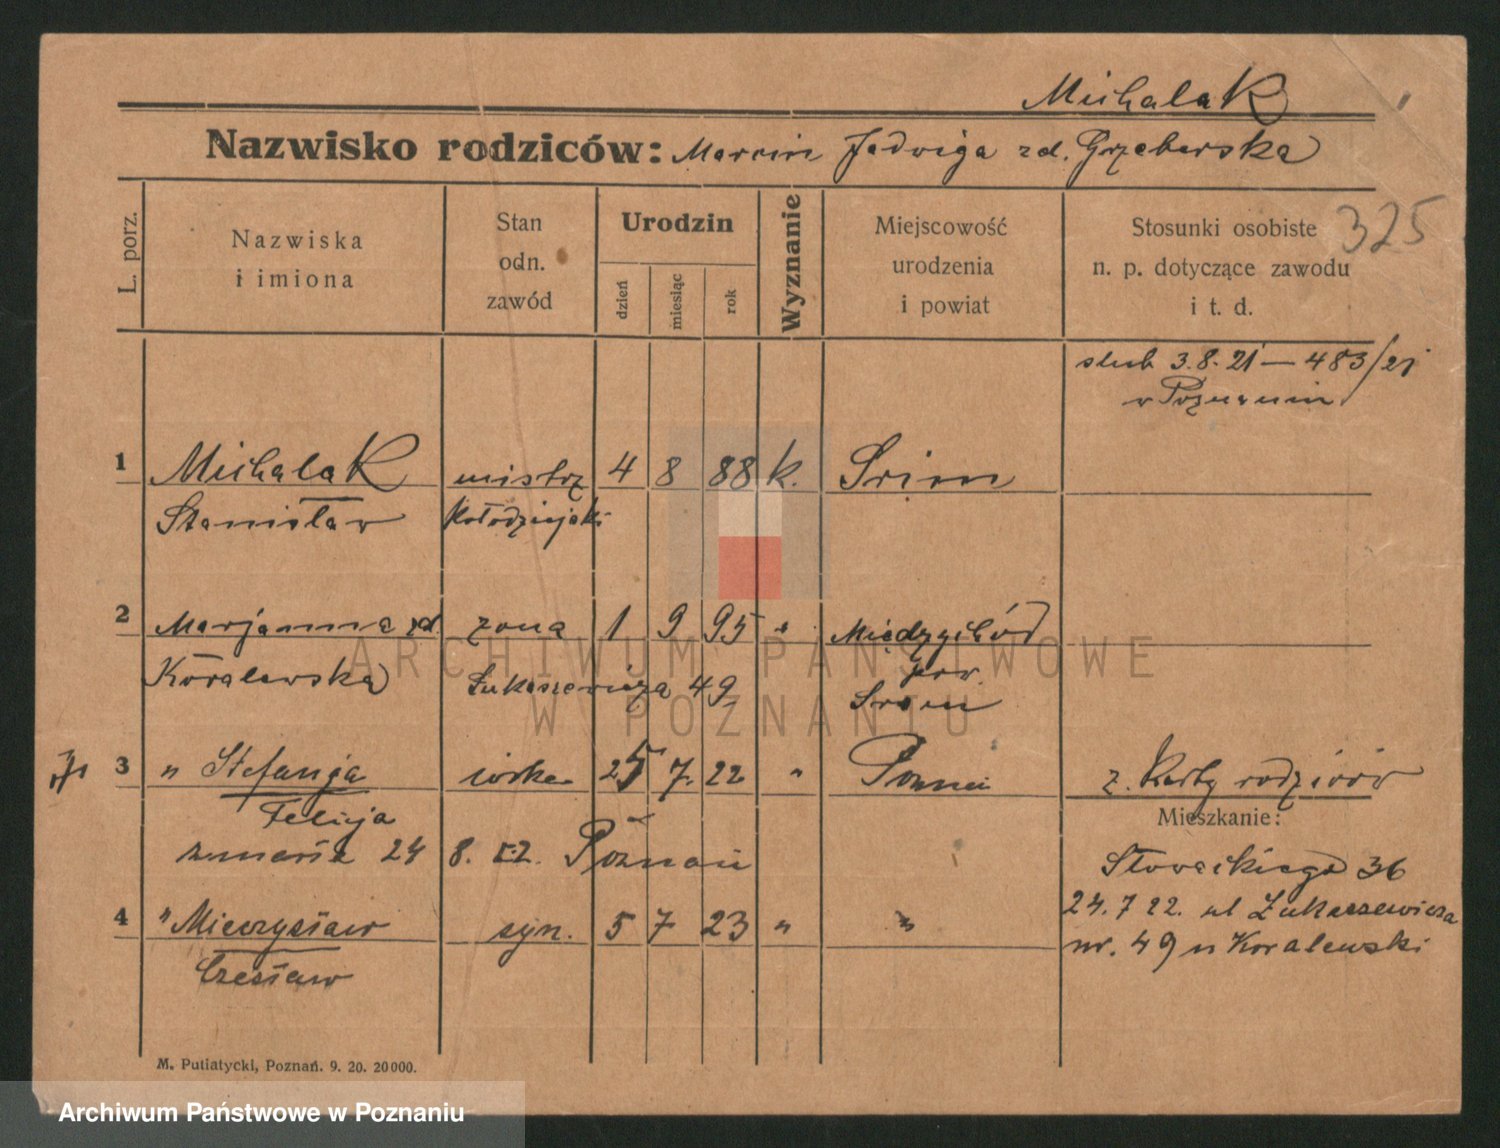 Michalak
Nazwisko rodziców: Marcin Jadwiga zd. Grzeberska
325
L. porz.
Nazwiska
i imiona
Stan
odn.
zawód
Urodzin
dzień
miesiąc
rok
Wyznanie
Miejscowość
urodzenia
i powiat
Stosunki osobiste
n. p. dotyczące zawodu
i t. d.
ślub 3.8.21 — 483/21
w Poznaniu
1 Michalak mistrz 4 8 88 k. Śrim
Stanisław Kołodziejski
2 Marjanna zd. żona 1 9 95 " Międzychód
Koralewska Łukaszewicza 49 pow.
Śrem
3 " Stefanja córka 25 7. 22 " Poznań z. Karty rodziców
Felicja
Mieszkanie:
zmarła 24 8. 22. Poznań
Słowackiego 36
4 " Mieczysław syn. 5 7 23 " "
Czesław
24.7 22. ul Łukaszewicza
nr. 49 u Koralewski
M. Putiatycki, Poznań. 9. 20. 20000.
ARCHIWUM PAŃSTWOWE
W POZNANIU
Archiwum Państwowe w Poznaniu